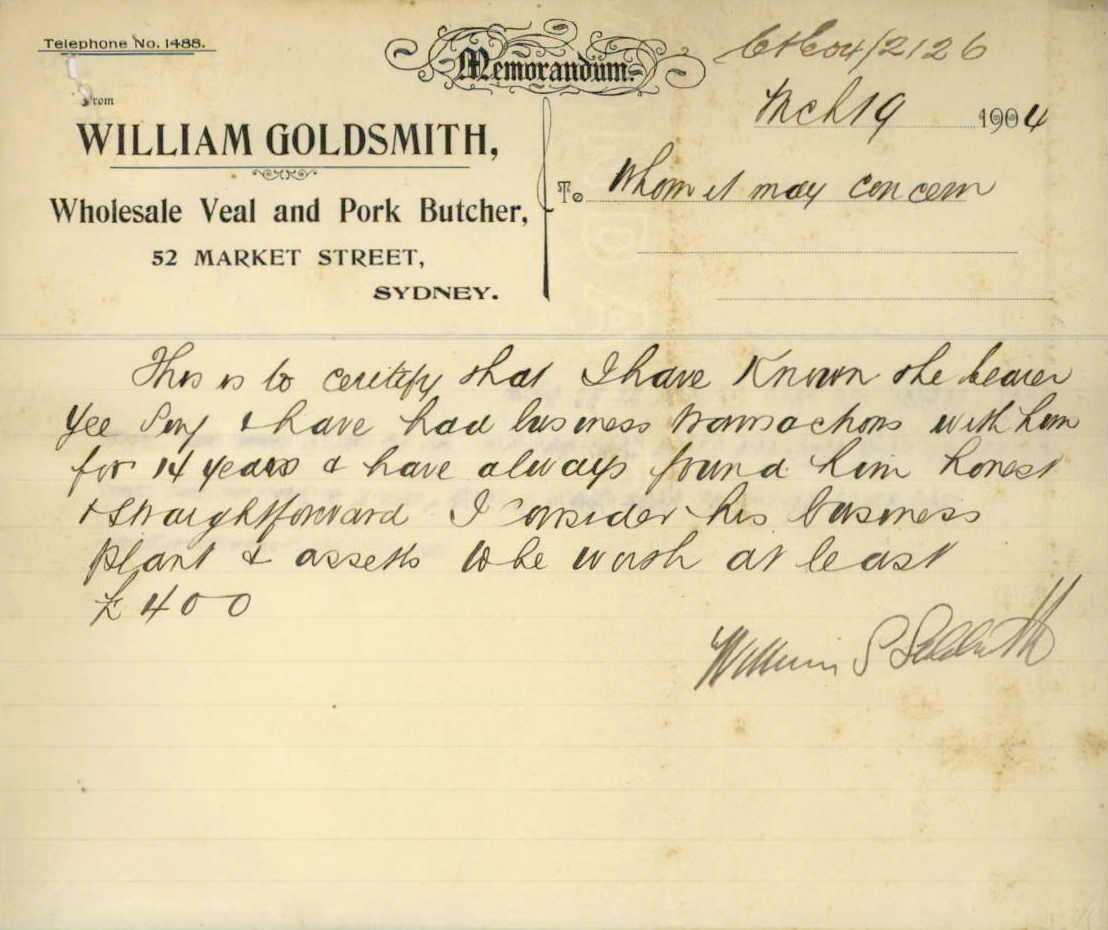 Telephone No. 1488.
Memorandum.
C+C 04/2126
From
Mch 19 1904
WILLIAM GOLDSMITH,
To Whom it may concern
Wholesale Veal and Pork Butcher,
52 MARKET STREET,
SYDNEY.
This is to ceritefy that I have Known the bearer
Yee & have had business transactions with him
for 14 years & have always found him honest
& straightforward I Consider his business
plant & assetts to be worth at least
£400
William S Goldsmith